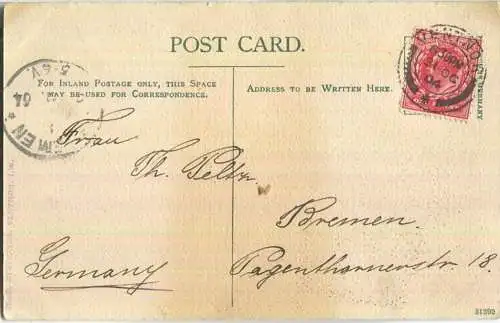 POST CARD.
FOR INLAND POSTAGE ONLY, THIS SPACE
MAY BE USED FOR CORRESPONDENCE.
ADDRESS TO BE WRITTEN HERE.
Frau
Th. Peltz.
Bremen
Germany
Pagenthornerstr 18.
31392